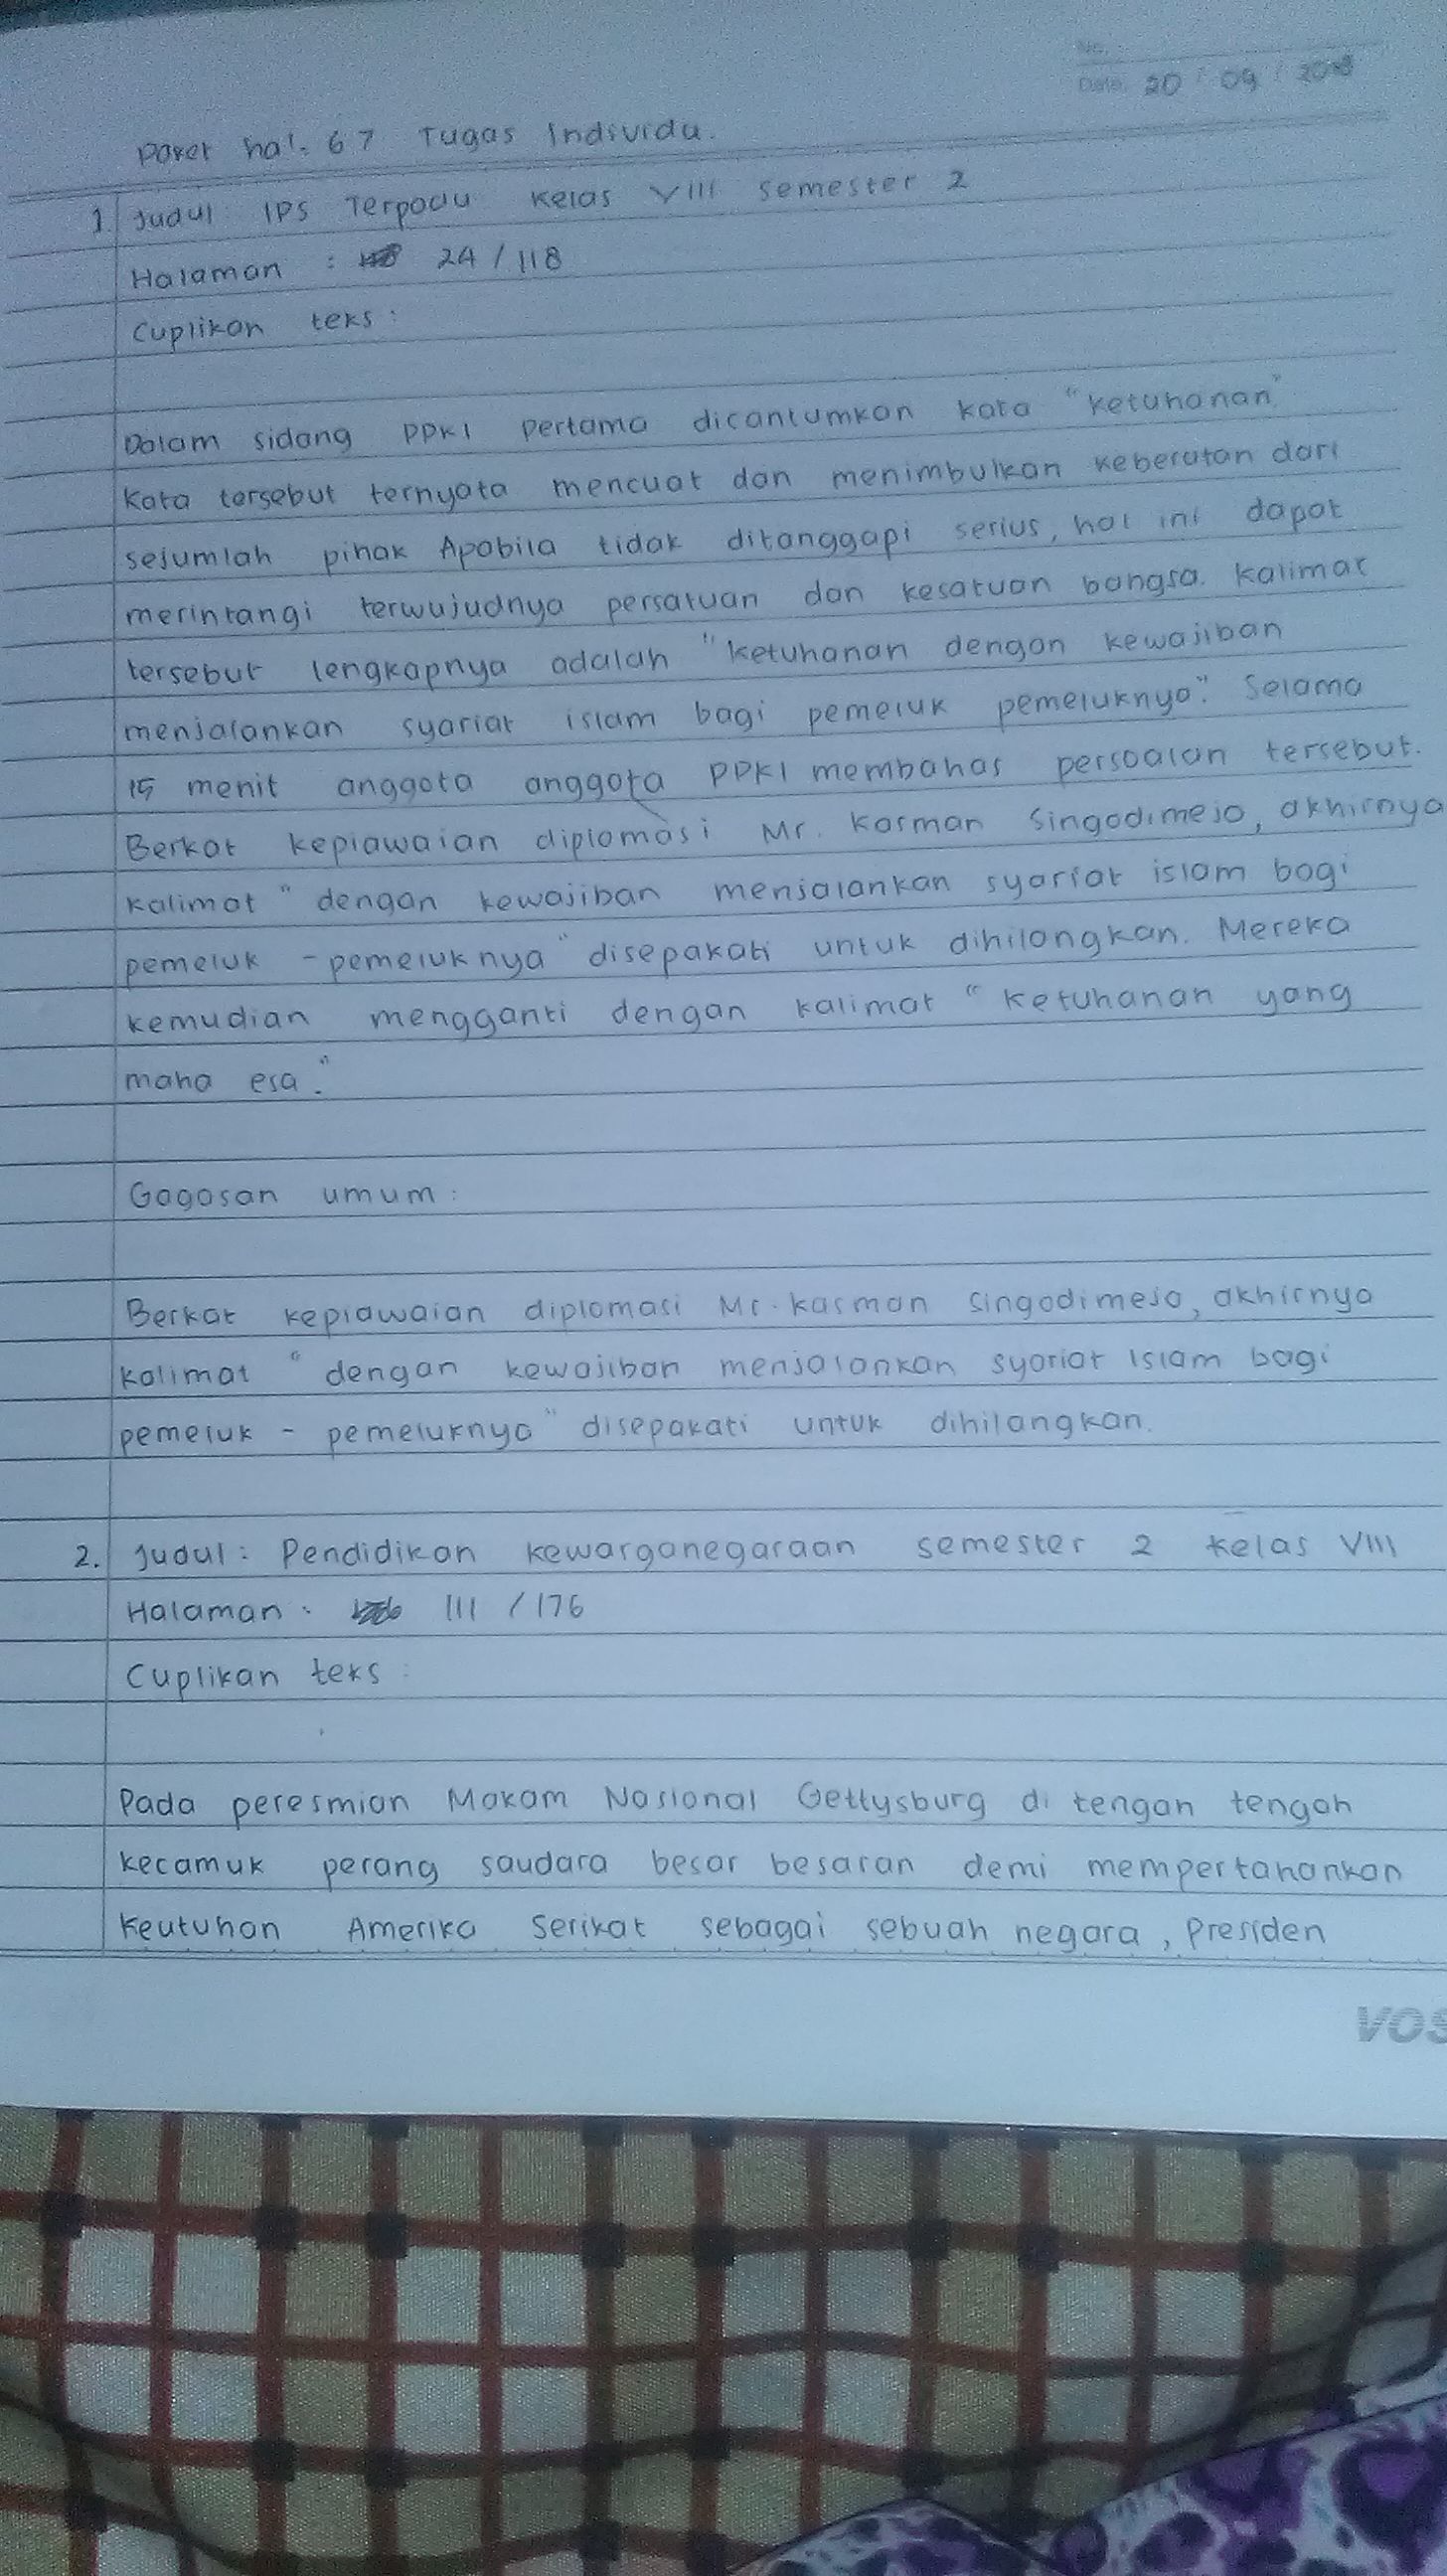 No.
Date. 20 / 09 / 2018
Paket hal. 67 Tugas Individu.
1. Judul : IPS Terpadu Kelas VIII semester 2
Halaman : 24 / 118
Cuplikan teks :
Dalam sidang PPKI pertama dicantumkan kata "ketuhanan"
Kata tersebut ternyata mencuat dan menimbulkan keberatan dari
sejumlah pihak Apabila tidak ditanggapi serius, hal ini dapat
merintangi terwujudnya persatuan dan kesatuan bangsa. Kalimat
tersebut lengkapnya adalah "ketuhanan dengan kewajiban
menjalankan syariat islam bagi pemeluk pemeluknya". Selama
15 menit anggota anggota PPKI membahas persoalan tersebut.
Berkat kepiawaian diplomasi Mr. Kasman Singodimejo, akhirnya
kalimat "dengan kewajiban menjalankan syariat islam bagi
pemeluk - pemeluknya" disepakati untuk dihilangkan. Mereka
kemudian mengganti dengan kalimat "Ketuhanan yang
maha esa."
Gagasan umum :
Berkat kepiawaian diplomasi Mr. Kasman Singodimejo, akhirnya
kalimat "dengan kewajiban menjalankan syariat Islam bagi
pemeluk - pemeluknya" disepakati untuk dihilangkan.
2. Judul : Pendidikan kewarganegaraan semester 2 kelas VIII
Halaman : 111 / 176
Cuplikan teks :
Pada peresmian Makam Nasional Gettysburg di tengah tengah
kecamuk perang saudara besar besaran demi mempertahankan
keutuhan Amerika Serikat sebagai sebuah negara, Presiden